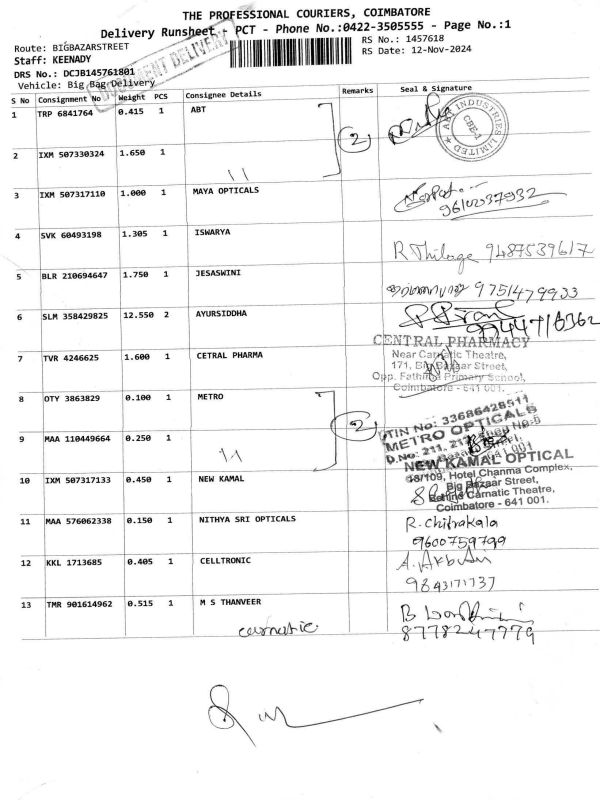 THE PROFESSIONAL COURIERS, COIMBATORE
Delivery Runsheet - PCT - Phone No.:0422-3505555 - Page No.:1
Route: BIGBAZARSTREET RS No.: 1457618
Staff: KEENADY RS Date: 12-Nov-2024
DRS No.: DCJB145761801
DOCUMENT DELIVERY
Vehicle: Big Bag Delivery
S No Consignment No Weight PCS Consignee Details Remarks Seal & Signature
1 TRP 6841764 0.415 1 ABT
2
ABT INDUSTRIES LIMITED
CBE-1
2 IXM 507330324 1.650 1
3 IXM 507317110 1.000 1 MAYA OPTICALS
4 SVK 60493198 1.305 1 ISWARYA
R Thilaga 9487539617
5 BLR 210694647 1.750 1 JESASWINI
9751479933
6 SLM 358429825 12.550 2 AYURSIDDHA
7 TVR 4246625 1.600 1 CETRAL PHARMA
CENTRAL PHARMACY
Near Carnatic Theatre,
171, Big Bazaar Street,
Opp. Fathima Primary School,
Coimbatore - 641 001.
8 OTY 3863829 0.100 1 METRO
2
TIN No: 33686428511
METRO OPTICALS
9 MAA 110449664 0.250 1
10 IXM 507317133 0.450 1 NEW KAMAL
NEW KAMAL OPTICAL
48/109, Hotel Chanma Complex,
Big Bazaar Street,
Behind Carnatic Theatre,
Coimbatore - 641 001.
11 MAA 576062338 0.150 1 NITHYA SRI OPTICALS
R. chitrakala
9600759799
12 KKL 1713685 0.405 1 CELLTRONIC
9843171737
13 TMR 901614962 0.515 1 M S THANVEER
carnatic
8778247779